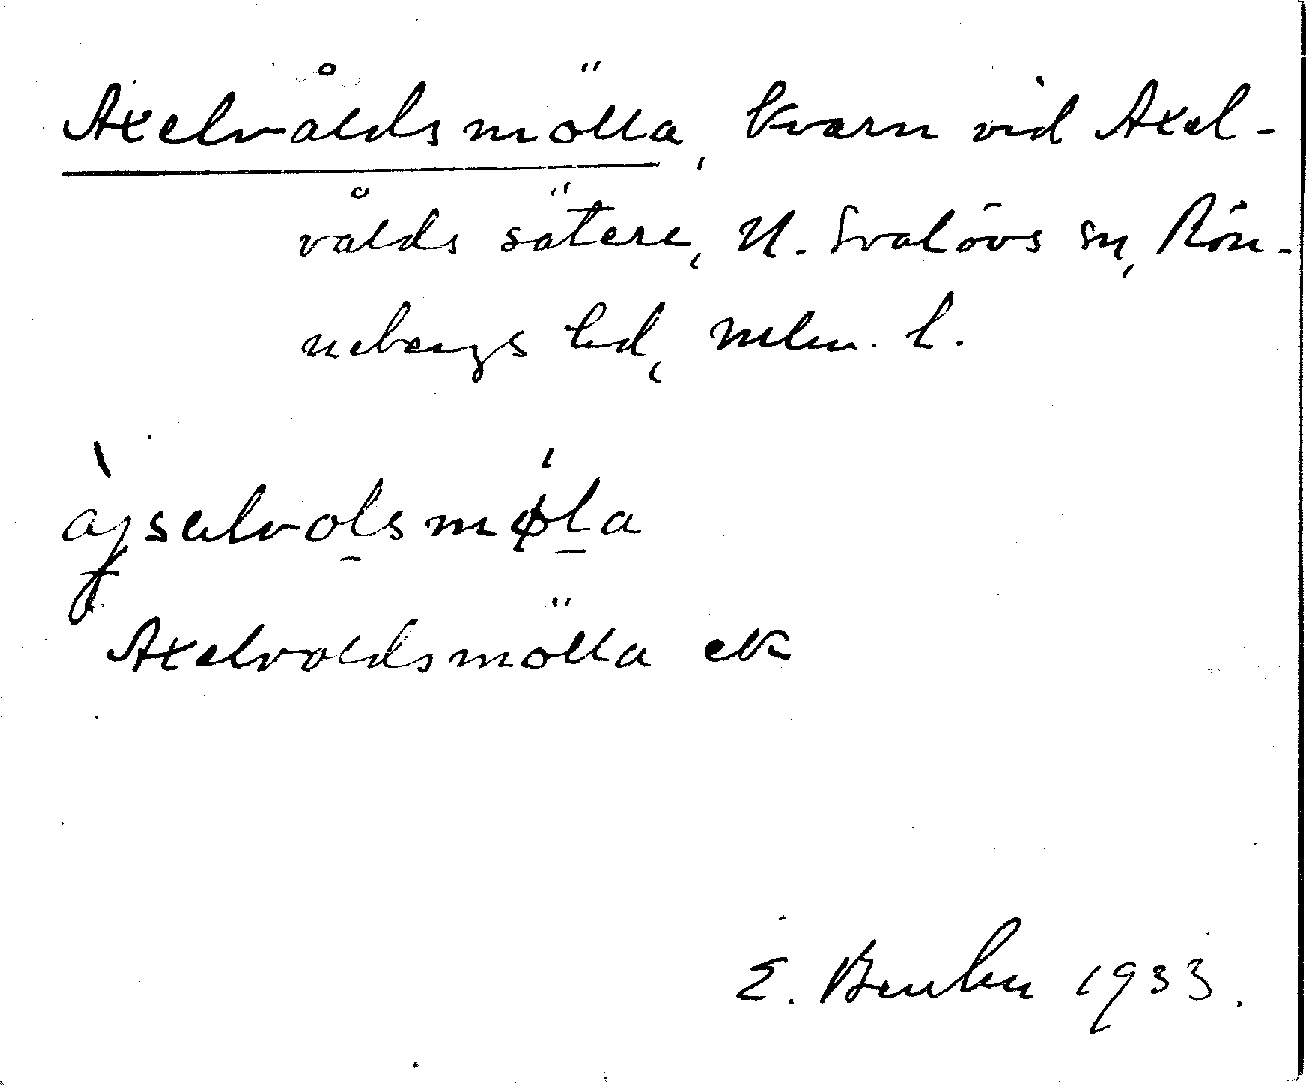 Axelvåldsmölla, kvarn vid Axel-
vålds säteri, N. Svalövs sn, Rön-
nebergs hd, Mlm. l.
àjselvolsmøla
Axelvoldsmölla ek
E. Benker 1933.